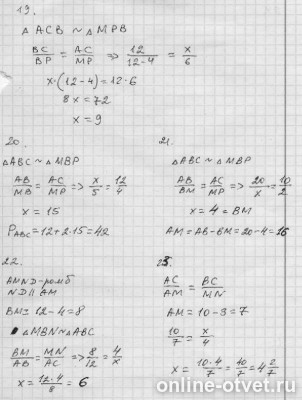 19.
△ACB ~ △MPB
BC/BP = AC/MP => 12/(12-4) = x/6
x·(12-4)=12·6
8x=72
x=9
20.
△ABC ~ △MBP
AB/MB = AC/MP => x/5 = 12/4
x=15
P_ABC=12+2·15=42
21.
△ABC ~ △MBP
AB/BM = AC/MP => 20/x = 10/2
x=4=BM
AM=AB-BM=20-4=16
22.
AMND-ромб
ND || AM
BM=12-4=8
△MBN~△ABC
BM/AB = MN/AC => 8/12 = 4/x
x=(12·4)/8=6
23.
AC/AM = BC/MN
AM=10-3=7
10/7 = x/4
x=(10·4)/7=40/7=4 2/7
online-otvet.ru